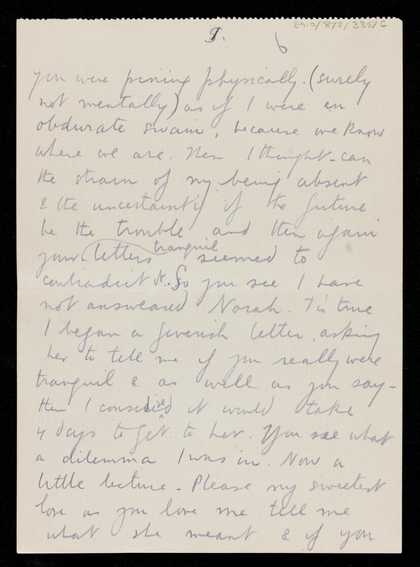 9. 6
you were pining physically. (surely
not mentally) as if I were an
obdurate swain, because we know
where we are. Then I thought - can
the strain of my being absent
& the uncertainty of the future
be the trouble and then again
your letters tranquil seemed to
contradict it. So you see I have
not answered Norah. Tis true
I began a feverish letter, asking
her to tell me if you really were
tranquil & as well as you say -
then I considered it would take
4 days to get to her. You see what
a dilemma I was in. Now a
little lecture - Please my sweetest
love as you love me tell me
what she meant & if you